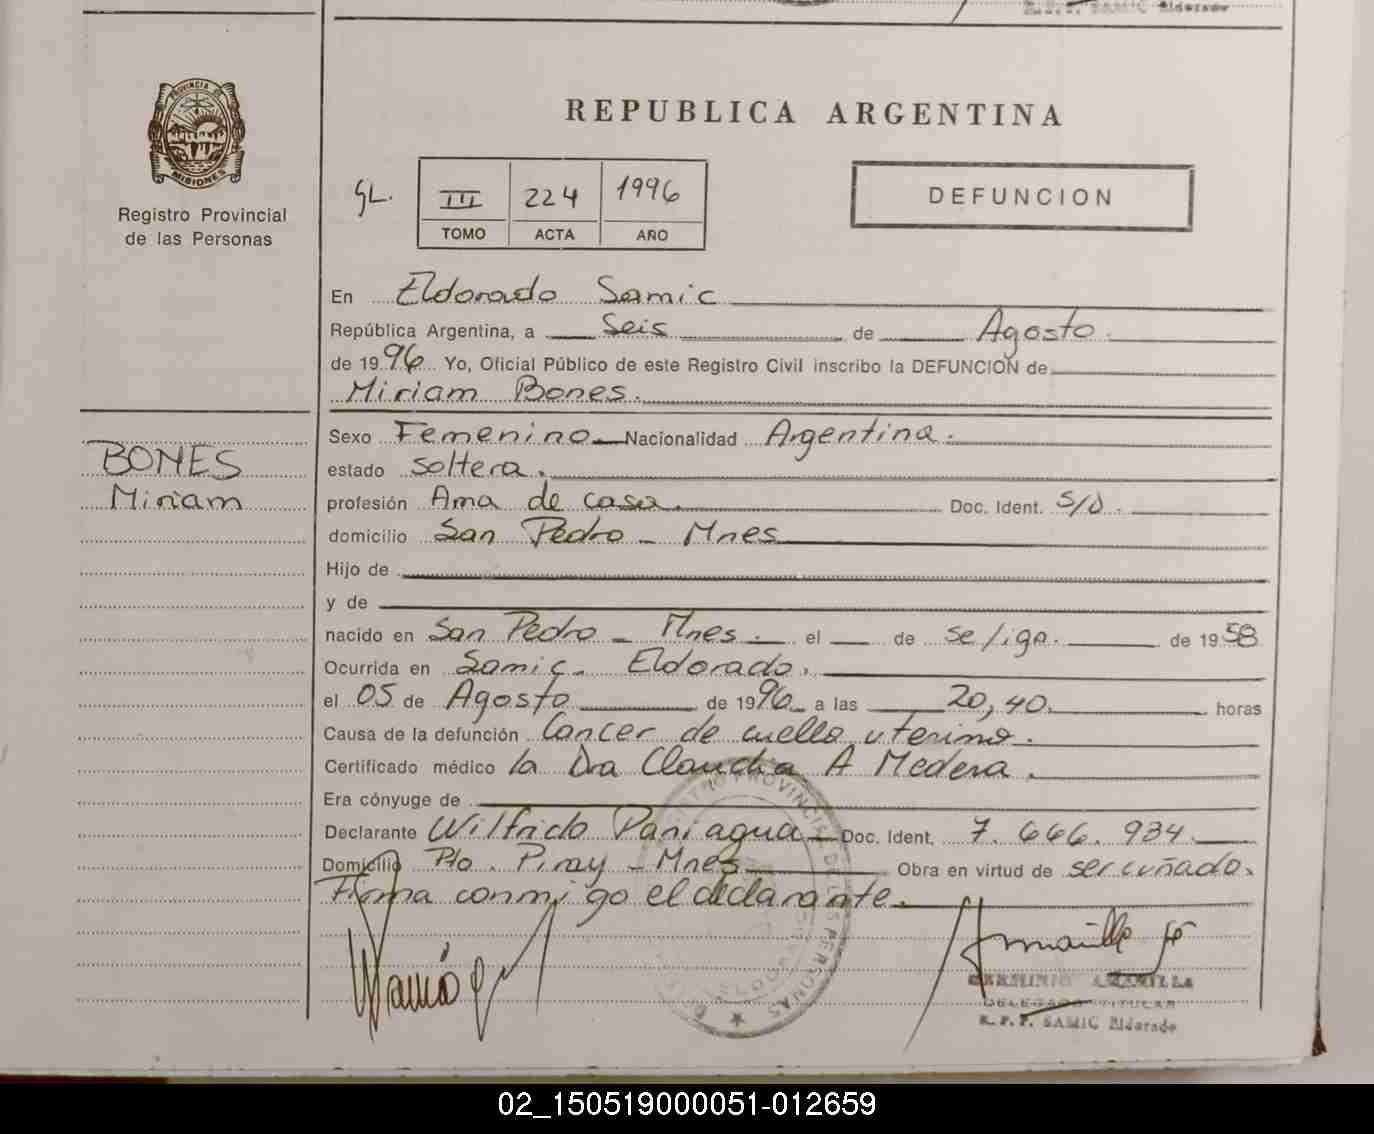 R.P.P. SAMIC Eldorado
PROVINCIA DE
MISIONES
Registro Provincial
de las Personas
REPUBLICA ARGENTINA
GL.
III 224 1996
TOMO ACTA AÑO
DEFUNCION
En Eldorado Samic
República Argentina, a Seis de Agosto.
de 1996 Yo, Oficial Público de este Registro Civil inscribo la DEFUNCION de
Miriam Bones.
BONES
Miriam
Sexo Femenino Nacionalidad Argentina.
estado soltera.
profesión Ama de casa. Doc. Ident. S/D.
domicilio San Pedro - Mnes
Hijo de
y de
nacido en San Pedro - Mnes. el de se/iga. de 1958
Ocurrida en Samic. Eldorado.
el 05 de Agosto de 1996 a las 20,40. horas
Causa de la defunción Cancer de cuello uterino.
Certificado médico la Dra Claudia A Medera.
Era cónyuge de
Declarante Wilfrido Paniagua Doc. Ident. 7.666.934.
Domicilio Pto. Piray - Mnes Obra en virtud de ser cuñado.
Firma conmigo el declarante.
REGISTRO PROVINCIAL DE LAS PERSONAS
HERMINIO AMARILLA
DELEGADO TITULAR
R.P.P. SAMIC Eldorado
02_150519000051-012659